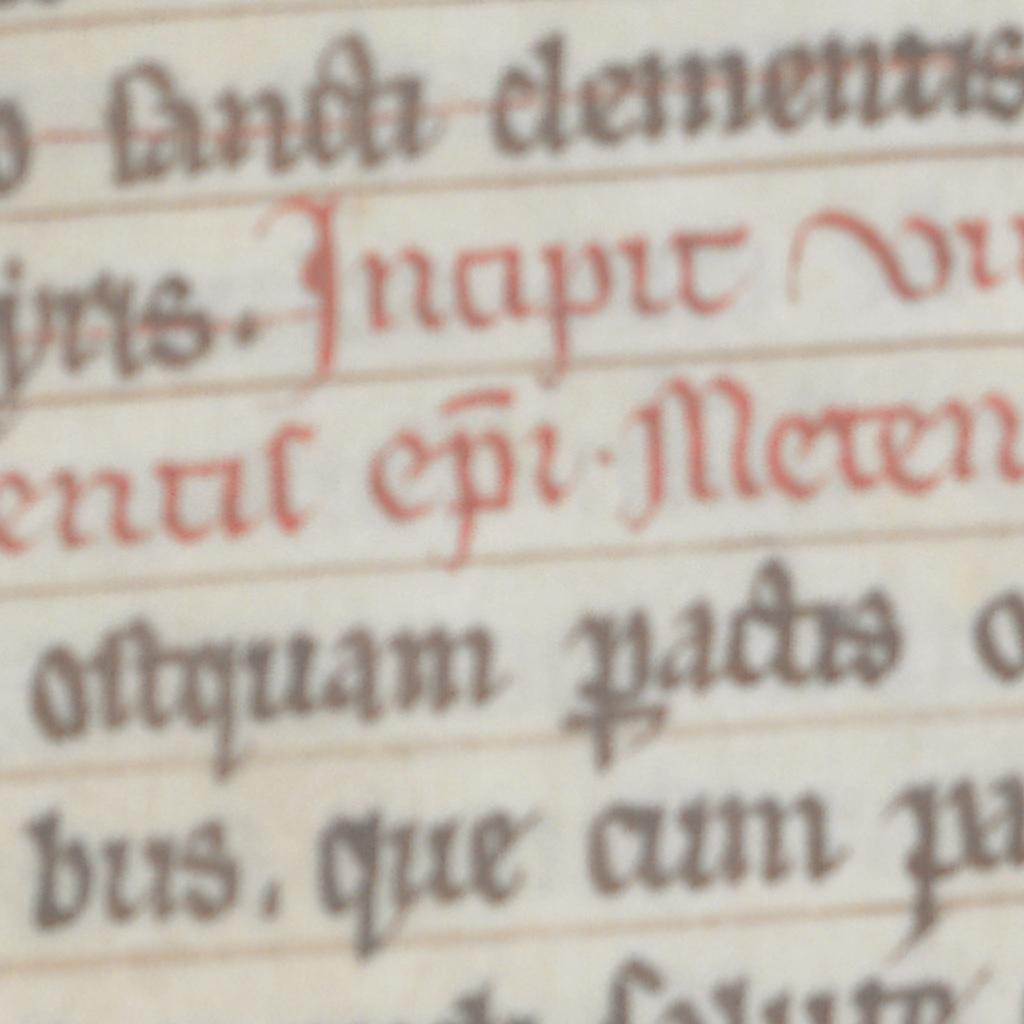 o sancti clementis
yris. Incipit vi
entis ep̄i · Meten
ostquam ꝑactis o
bus. que cum pa
salute